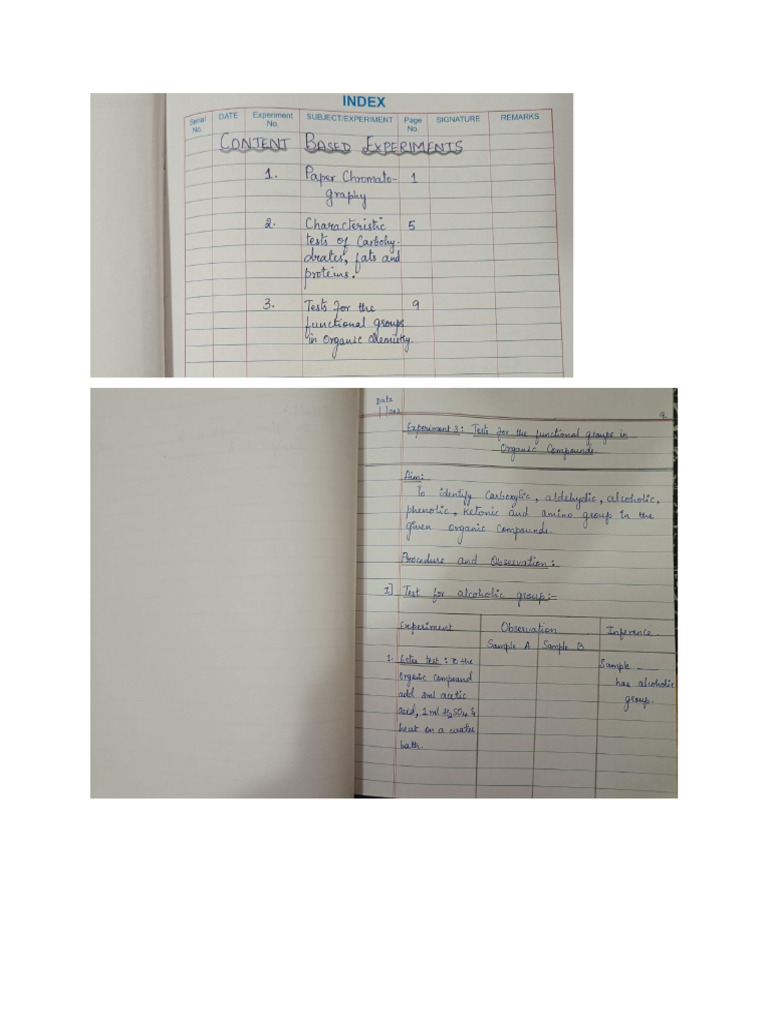 INDEX
Serial No. DATE Experiment No. SUBJECT/EXPERIMENT Page No. SIGNATURE REMARKS
CONTENT BASED EXPERIMENTS
1. Paper Chromato- 1
graphy
2. Characteristic 5
tests of Carbohy-
drates, fats and
proteins.
3. Tests for the 9
functional groups
in Organic Chemistry.
Date
9.
Experiment 3: Tests for the functional groups in
Organic Compounds.
Aim:
To identify Carboxylic, aldehydic, alcoholic,
phenolic, ketonic and amino group in the
given organic compounds.
Procedure and Observation:
I] Test for alcoholic group:-
Experiment Observation Inference.
Sample A Sample B
1. Ester test: To the Sample __
Organic Compound has alcoholic
add 2ml acetic group.
acid, 1 ml H2SO4 &
heat on a water
bath.